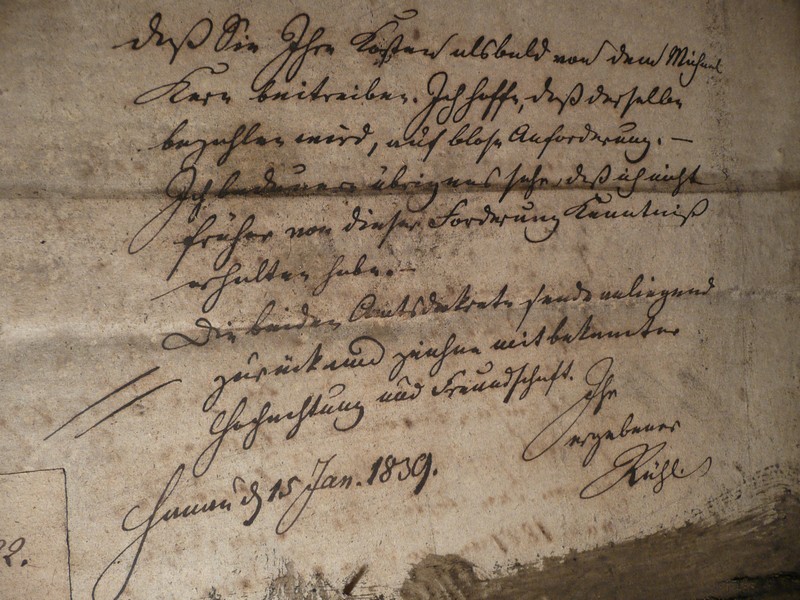 daß Sie Ihre Kosten alsbald von dem Michael
Kern beitreiben. Ich hoffe, daß derselbe
bezahlen wird, auf blose Anforderung. —
Ich bedauere übrigens sehr, daß ich nicht
früher von dieser Forderung Kenntniß
erhalten habe. —
Die beiden Amtsdekrete sende anliegend
zurück und zeichne mit bekannter
Hochachtung und Freundschaft.
Ihr
ergebener
Rühl.
Hanau d 15 Jan. 1839.
22.